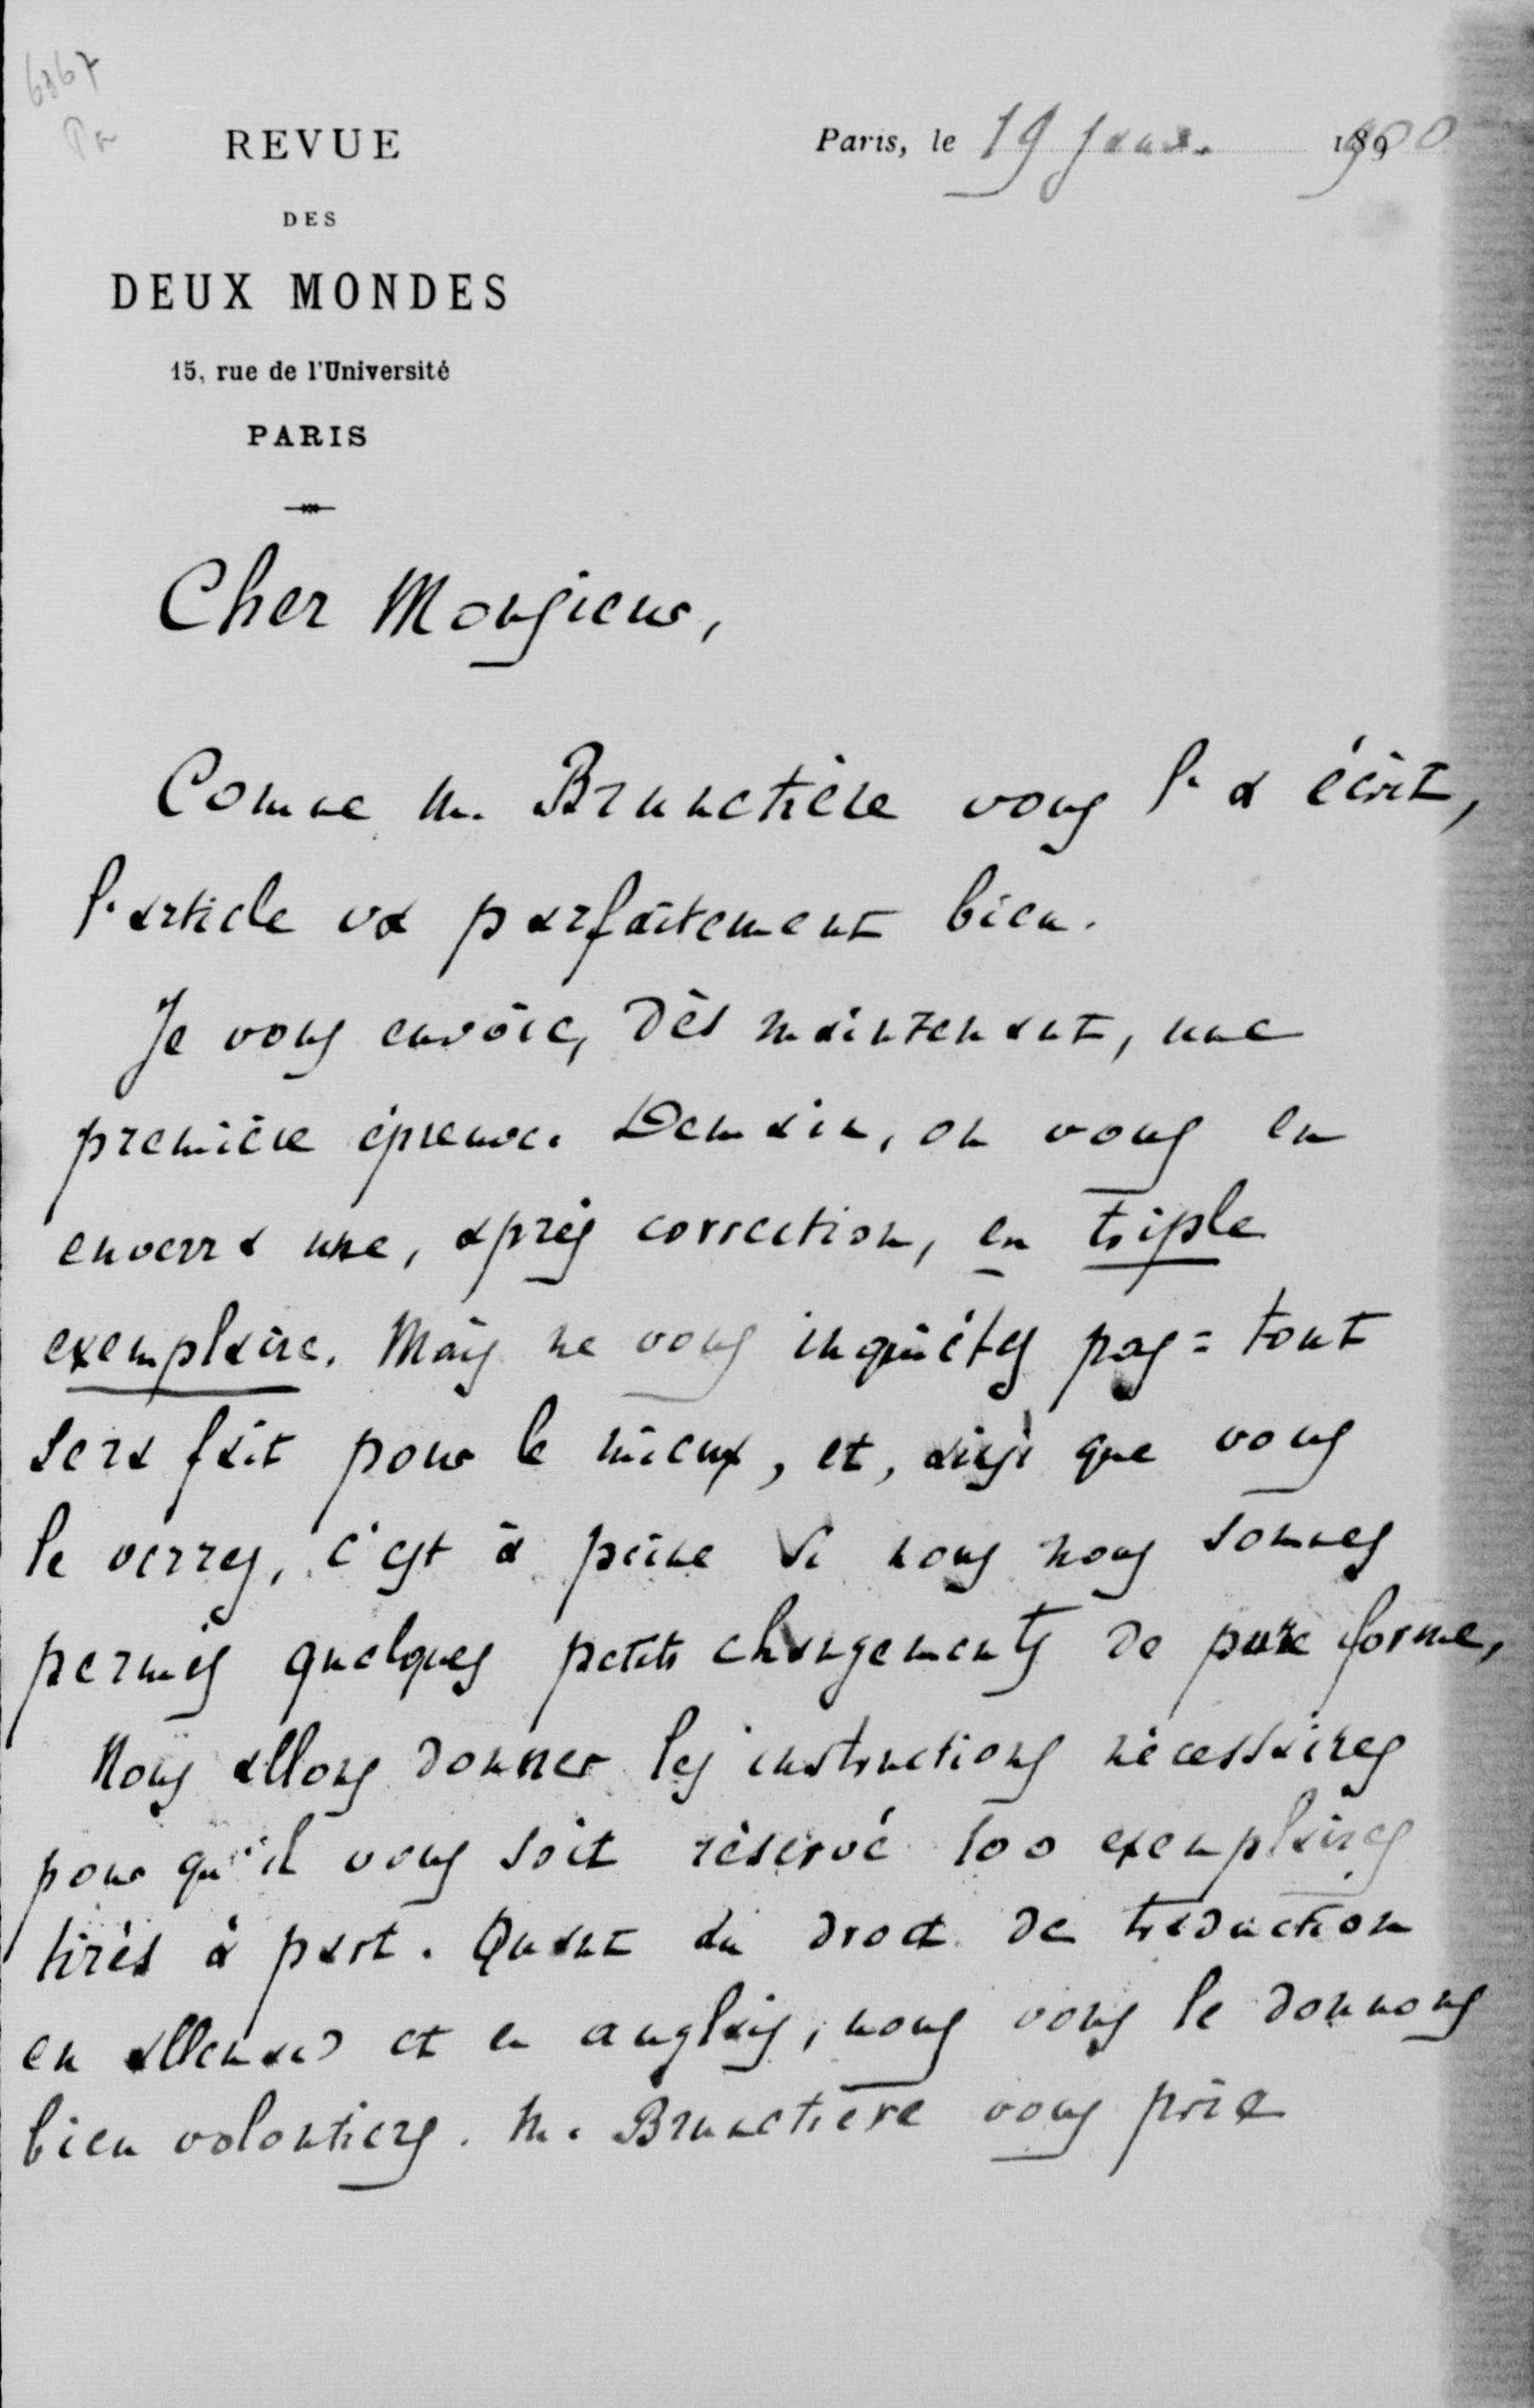 6367
Pa
REVUE
DES
DEUX MONDES
15, rue de l'Université
PARIS
Paris, le 19 Janv. 1900
Cher Monsieur,
Comme M. Brunetière vous l'a écrit,
l'article va parfaitement bien.
Je vous envoie, dès maintenant, une
première épreuve. Demain, on vous en
enverra une, après correction, en triple
exemplaire. Mais ne vous inquiétez pas = tout
sera fait pour le mieux, et, ainsi que vous
le verrez, c'est à peine si nous nous sommes
permis quelques petits changements de pure forme,
Nous allons donner les instructions nécessaires
pour qu'il vous soit réservé 100 exemplaires
tirés à part. Quant au droit de traduction
en allemand et en anglais, nous vous le donnons
bien volontiers. M. Brunetière vous prie